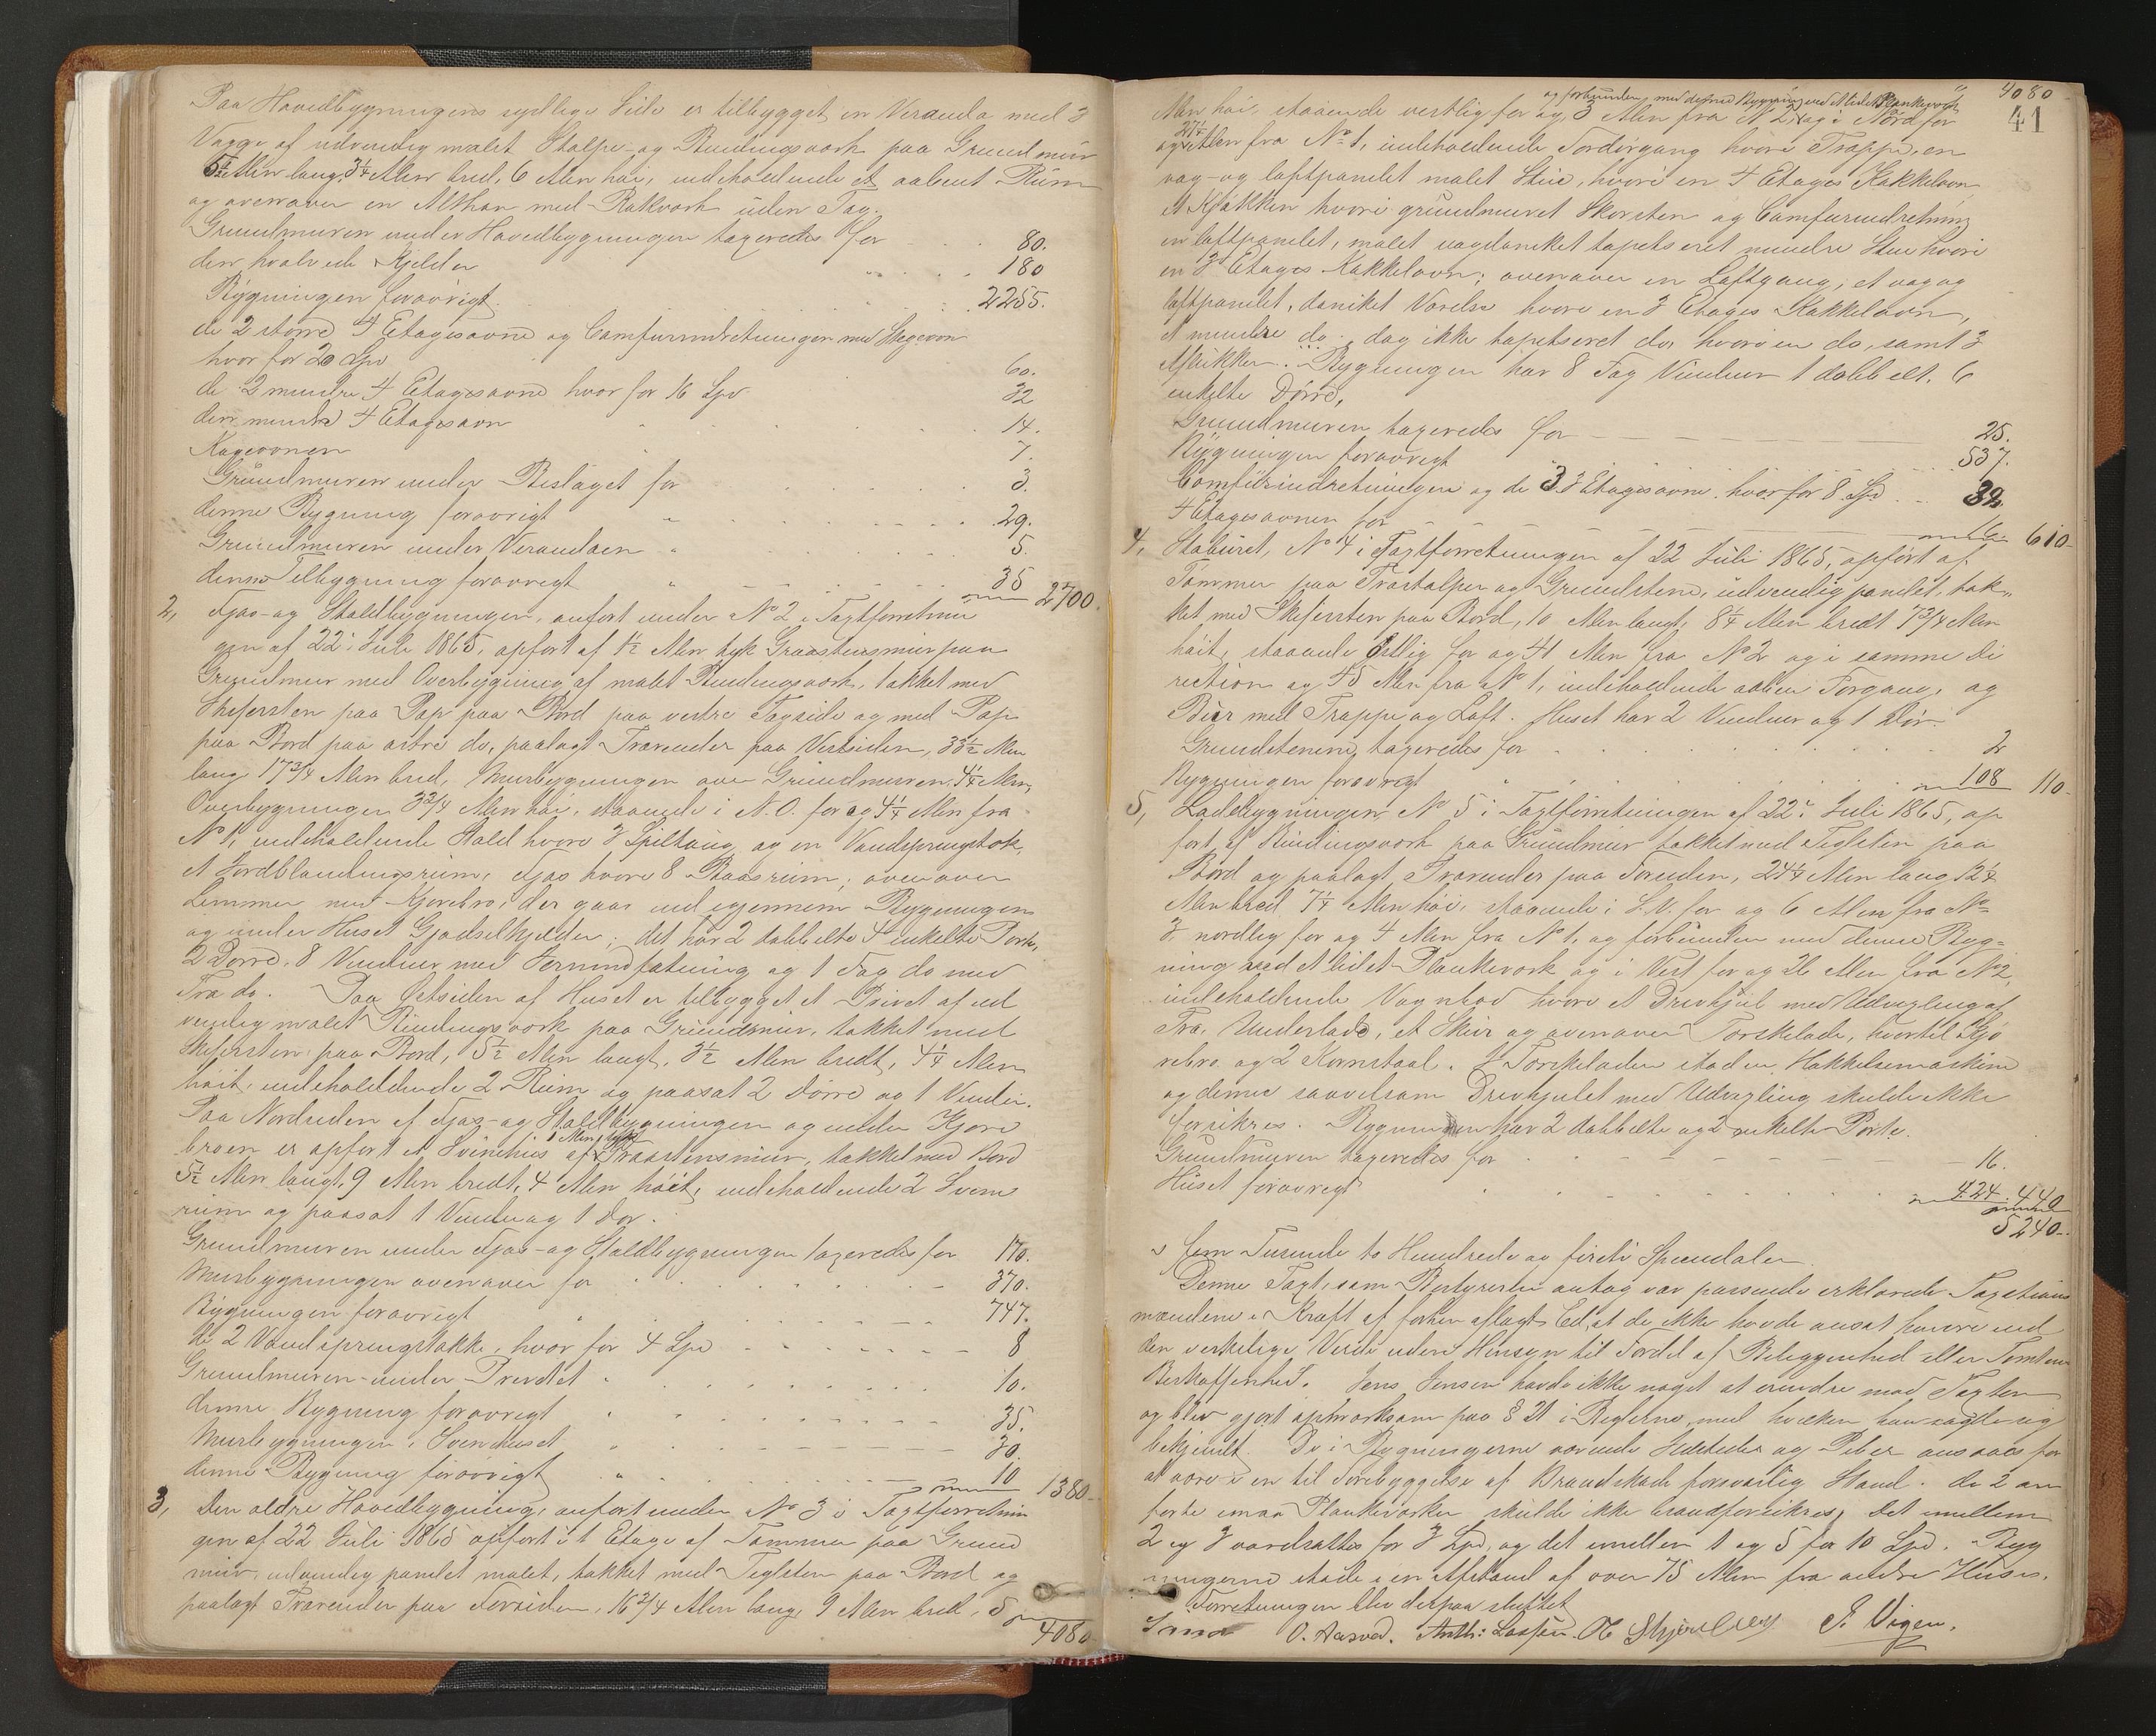 Paa Hovedbygningens sydlige Side er tilbygget en Veranda med 3
Vægge af udvendig malet Stolpe- og Bindingsværk paa Grundmur
5½ Alen lang, 3¼ Alen bred, 6 Alen høi, indeholdende et aabent Rum
og ovenover en Althan med Rækværk uden Tag.
Grundmuren under Hovedbygningen taxeredes for 80.
den hvalvede Kjelder " 180
Bygningen forøvrigt 2255.
de 2 større 4 Etagesovne og Comfurindretningen med Stegeovn
hvor for 20 Spd 60.
de 2 mindre 4 Etagesovne hvor for 16 Spd 32
den mindre 4 Etagesovn 14.
Kageovnen 7.
Grundmuren under Bislaget for 3.
denne Bygning forøvrigt " 29.
Grundmuren under Verandaen " 5.
denne Tilbygning forøvrigt " 35 2700.
2, Fjøs- og Staldbygningen, anført under No 2 i Taxtforretnin
gen af 22 Juli 1865, opført af 1½ Alen tyk Graastensmur paa
Grundmur med Overbygning af malet Bindingsværk, tækket med
Skifersten paa Pap paa Bord paa vestre Tagside og med Pap
paa Bord paa østre do, paalagt Trærender paa Vestsiden, 33½ Alen
lang 17¾ Alen bred, Murbygningen over Grundmuren 4¼ Alen,
Overbygningen 3¾ Alen høi, staaende i N.O. for og 4¼ Alen fra
No 1, indeholdende Stald hvori 3 Spiltoug og en Vandspringstok,
et Fordblandingsrum, Fjøs hvori 8 Baasrum; ovenover
Lemmen med Kjørebro, der gaar ind igjennem Bygningen
og under Huset Gjødselkjelder; det har 2 dobbelte 4 enkelte Porte,
2 Dørre, 8 Vinduer med Jernindfatning og 1 Fag do med
Træ do. Paa Østsiden af Huset er tilbygget et Privet af ud
vendig malet Bindingsværk paa Grundmur, tækket med
Skifersten paa Bord, 5½ Alen langt, 3½ Alen bredt, 4¼ Alen
høit, indeholdende 2 Rum og paasat 2 Dørre og 1 Vindu.
Paa Nordsiden af Fjøs- og Staldbygningen og under Kjøre
broen er opført et Svinehus af 1 Alen tyk Graastensmur, tækket med Bord
5½ Alen langt, 9 Alen bredt, 4 Alen høit, indeholdende 2 Svine
rum og paasat 1 Vindu og 1 Dør.
Grundmuren under Fjøs- og Staldbygningen taxeredes for 170.
Murbygningen ovenover for 370.
Bygningen forøvrigt " 747.
de 2 Vandspringstokke, hvor for 4 Spd 8
Grundmuren under Privetet " 10.
denne Bygning forøvrigt " 35.
Murbygningen i Svinehuset " 30.
denne Bygning forøvrigt " 10 1380
3, Den ældre Hovedbygning, anført under No 3 i Taxtforretnin
gen af 22 Juli 1865 opført i 1 Etage af Tømmer paa Grund
mur, udvendig panelet malet, tækket med Teglsten paa Bord og
paalagt Trærender paa Forsiden, 16¾ Alen lang, 9 Alen bred, 5
4080
4080
41
og forbunden med denne Bygning ved et lidet Plankeværk
Alen høi, staaende vestlig for og 3 Alen fra No 2, og i Nord for
og 27¼ Alen fra No 1, indeholdende Fordørgang hvori Trappe, en
væg- og loftpanelet malet Stue, hvori en 4 Etages Kakkelovn
et Kjøkken hvori grundmuret Skorsten og Comfurindretning
en loftpanelet, malet vægdansket tapetseret mindre Stue hvori
en 3 Etages Kakkelovn; ovenover en Loftgang, et væg og
loftpanelet, dansket Værelse hvori en 3 Etages Kakkelovn,
et mindre do, dog ikke tapetseret do, hvori en do, samt 3
Aflukker. Bygningen har 8 Fag Vinduer 1 dobbelt, 6
enkelte Dørre,
Grundmuren taxeredes for 25.
Bygningen forøvrigt 537.
Comfurindretningen og de 3 3 Etagesovne, hvor for 8 Spd 32.
4 Etagesovnen for 16 610
4, Staburet, No 4 i Taxtforretningen af 22 Juli 1865, opført af
Tømmer paa Træstolper og Grundstene, udvendig panelet, tæk„
ket med Skifersten paa Bord, 10 Alen langt, 8¼ Alen bredt 7¾ Alen
høit, staaende østlig for og 41 Alen fra No 2 og i samme Di
rection og 45 Alen fra No 1, indeholdende aaben Forgang, og
Buer med Trappe og Loft. Huset har 2 Vinduer og 1 Dør.
Grundstenene taxeredes for 2
Bygningen forøvrigt " 108 110
5, Ladebygningen No 5 i Taxtforretningen af 22 Juli 1865, op
ført af Bindingsværk paa Grundmur tækket med Teglsten paa
Bord og paalagt Trærender paa Forsiden, 24¼ Alen lang 12¼
Alen bred 7¼ Alen høi, staaende i S.V. for og 6 Alen fra No
3, nordlig for og 4 Alen fra No 1, og forbunden med denne Byg=
ning med et lidet Plankeværk og i Vest for og 26 Alen fra No 2,
indeholdende Vognbod hvori et Drivhjul med Udvexling af
Træ, Underlade, et Skur og ovenover Tørskelade, hvortil Kjø
rebro og 2 Kornstaal. I Tørskeladen stod en Hakkelsemaskine
og denne saavelsom Drivhjulet med Udvexling skulde ikke
forsikres. Bygningen har 2 dobbelte og 2 enkelte Porte.
Grundmuren taxeredes for 16.
Huset forøvrigt 424. 440
5240
fem Tusende to Hundrede og firti Speciedaler.
Denne Taxt, som Bestyrelsen antog var passende erklærede Taxations
mændene i Kraft af forhen aflagt Ed, at de ikke havde ansat høiere end
den verkelige Værdi uden Hensyn til Fordel af Beliggenhed eller Tomtens
Beskaffenhed. Jens Jensen havde ikke noget at erindre mod Taxten
og blev gjort opmærksom paa § 21 i Reglerne, med hvilken han sagde sig
bekjendt. De i Bygningerne værende Ildsteder og Piber ansaaes for
at være i en til Forebyggelse af Brandskade forsvarlig Stand. De 2 an
førte smaa Plankeværker skulde ikke brandforsikres; det mellem
2 og 3 værdsattes for 3 Spd, og det mellem 1 og 5 for 10 Spd. Byg
ningerne stode i en Afstand af over 75 Alen fra andre Huse.
Forretningen blev derpaa sluttet
O. Aasved. Anth: Lossius. J. Vigen.